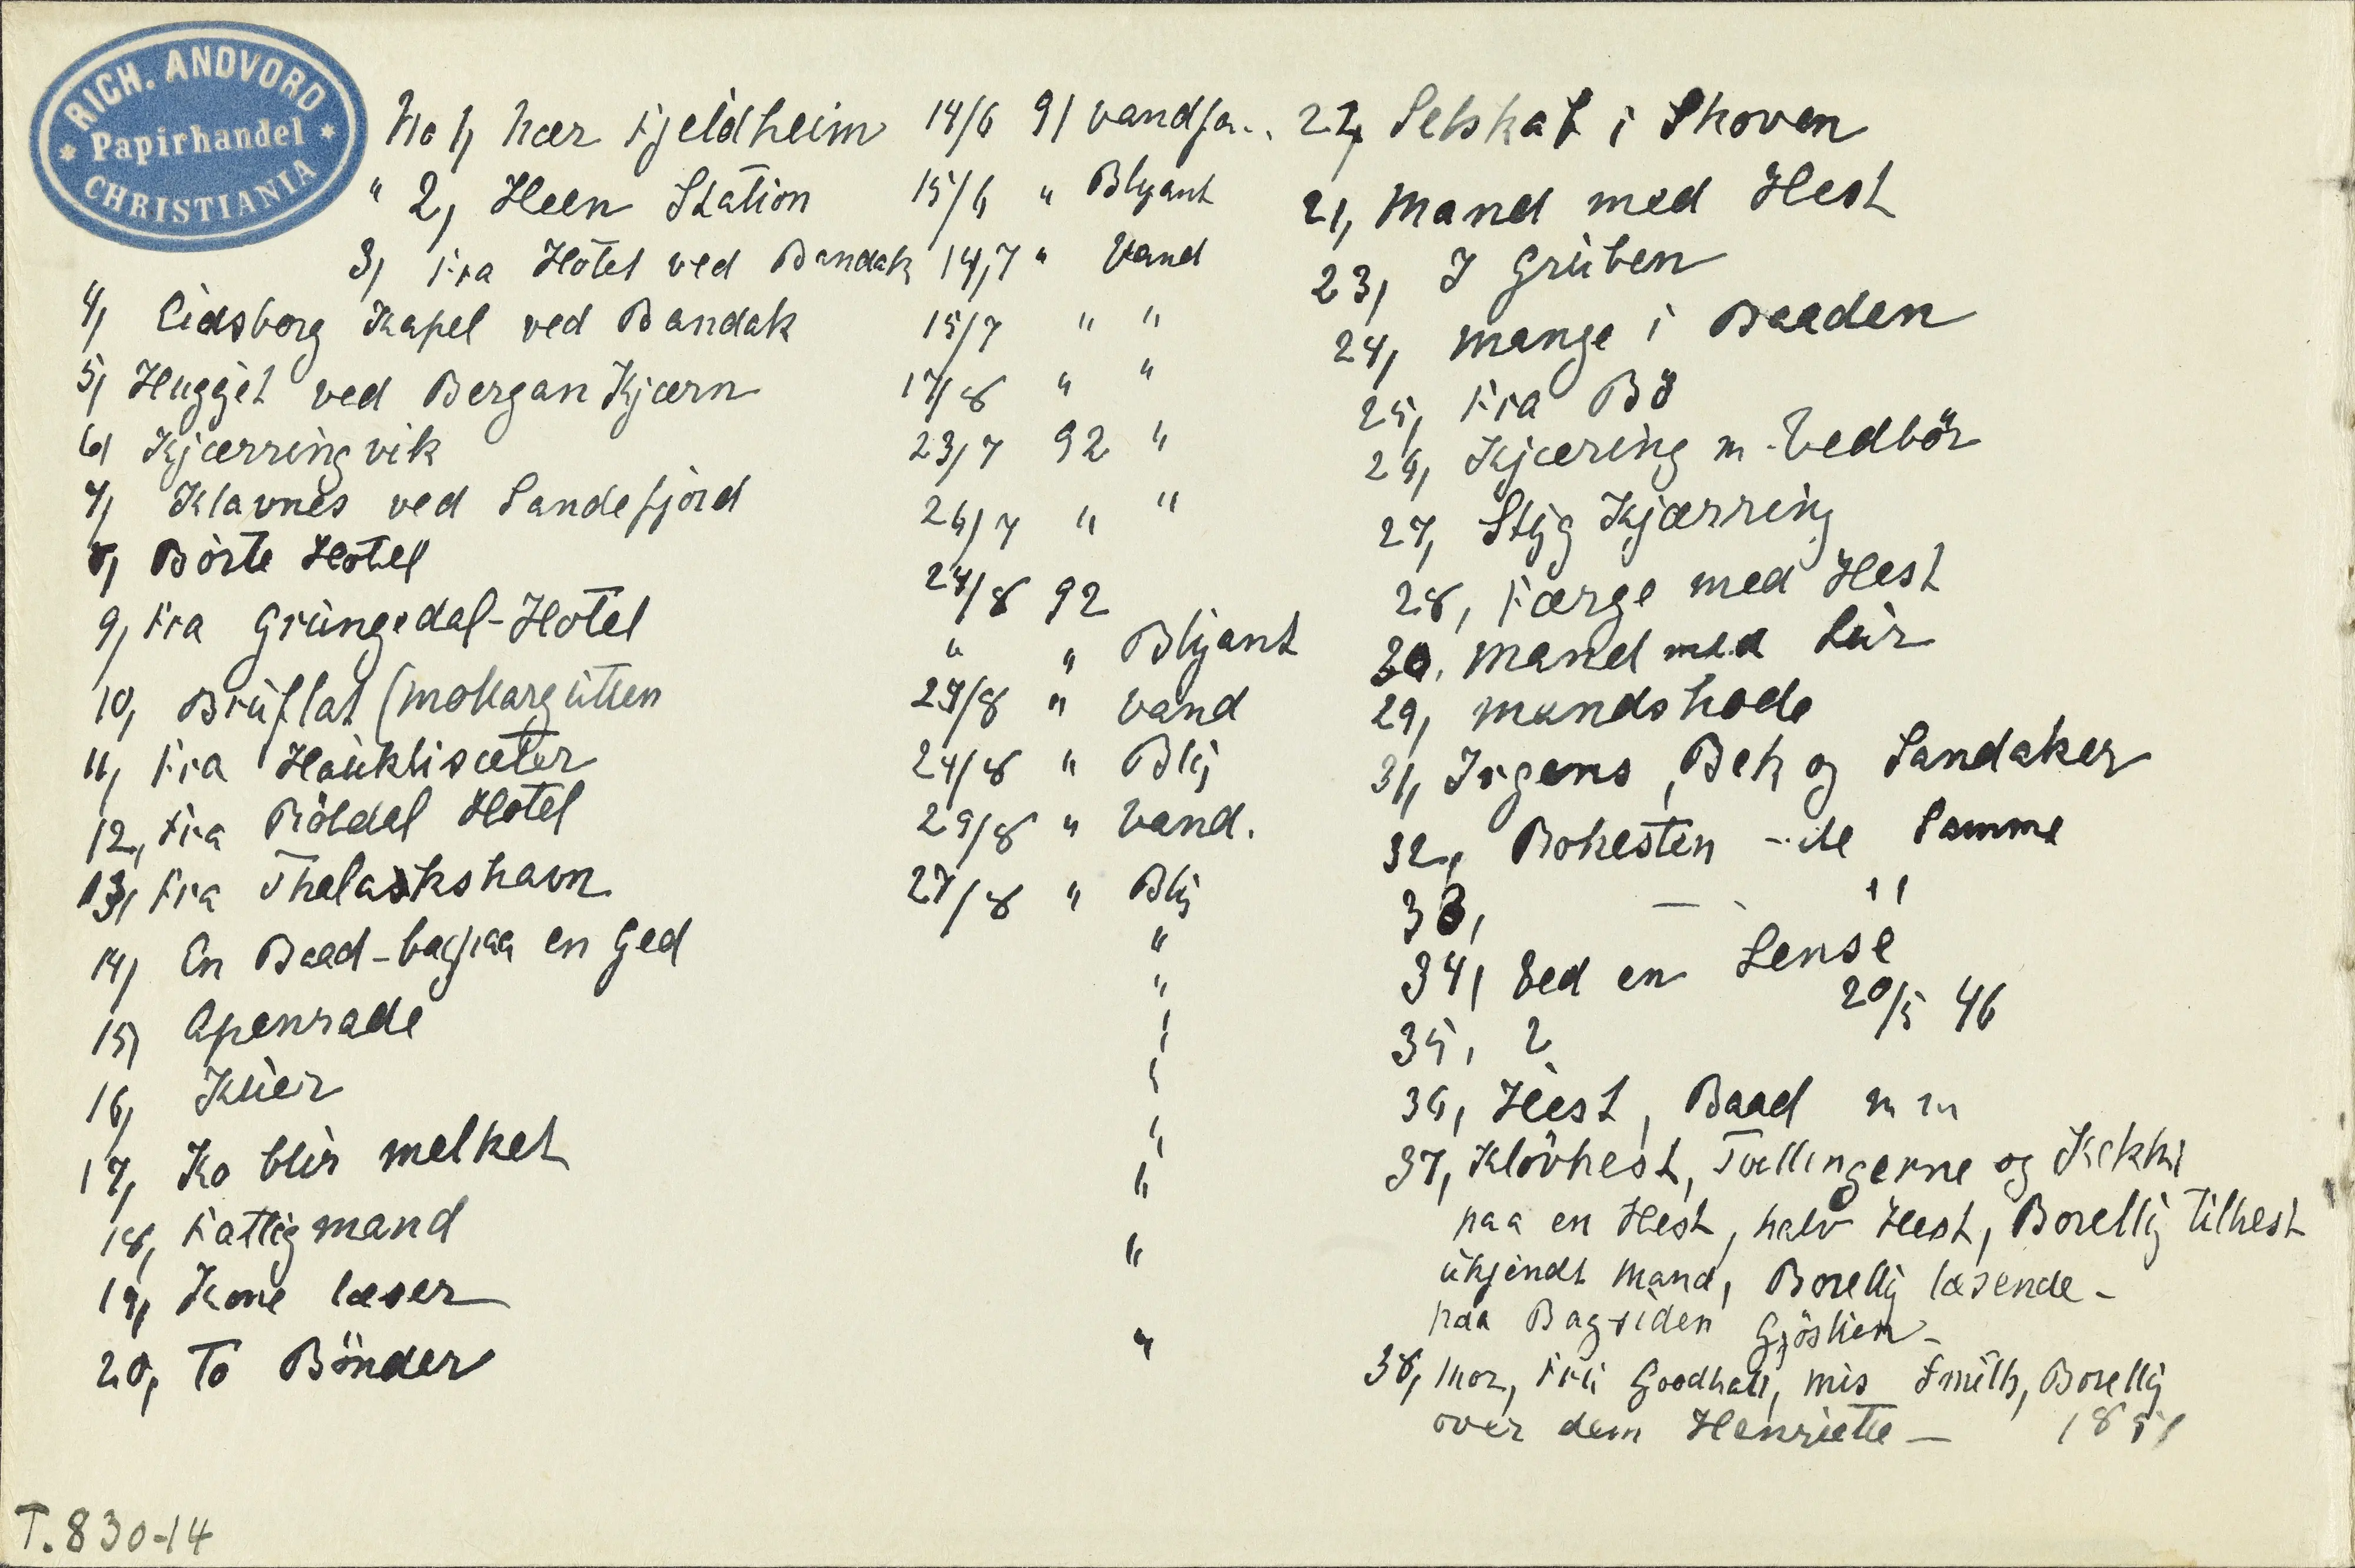 RICH. ANDVORD
* Papirhandel *
CHRISTIANIA
No 1, Nær Fjeldheim 14/6 91 vandfa..
" 2, Heen Station 15/6 " Blyant
3, Fra Hotel ved Bandak 14,7 " Vand
4, Eidsborg Kapel ved Bandak 15/7 " "
5, Hugget ved Bergan Kjærn 17/8 " "
6, Kjærringvik 23/7 92 "
7, Klavnes ved Sandefjord 26/7 " "
8, Börte Hotel 24/8 92
9, Fra Grungedal-Hotel " " Blyant
10, Bruflat (Mokargutten 23/8 " Vand
11, Fra Haukliseter 24/8 " Bly
12, Fra Röldal Hotel 29/8 " Vand.
13, Fra Thelaskshavn 27/8 " Bly
14, En Baad - bagpaa en Ged "
15, Apenrade "
16, Kuer "
17, Ko blir melket "
18, Fattigmand "
19, Kone læser "
20, To Bönder "
22, Selskab i Skoven
21, Mand med Hest
23, I Gruben
24, Mange i Baaden
25, Fra Bö
26, Kjæring m. Vedbör
27, Styg Kjærring
28, Færge med Hest
30. Mand med Lur
29, Mandshode
31, Irgens, Bek og Sandaker
32, Bokesten - de Samme
33, — "
34, Ved en Lense
20/5 46
35, 2
36, Hest, Baad m m
37, Klövhest, Tullingerne og Kikki
paa en Hest, halv Hest, Borelly tilhest
ukjendt Mand, Borelly læsende -
paa Bagsiden Gjöslien -
38, Mor, Fru Goodhall, Mis Smith, Borelly
over dem Henriette — 1851
T. 830-14